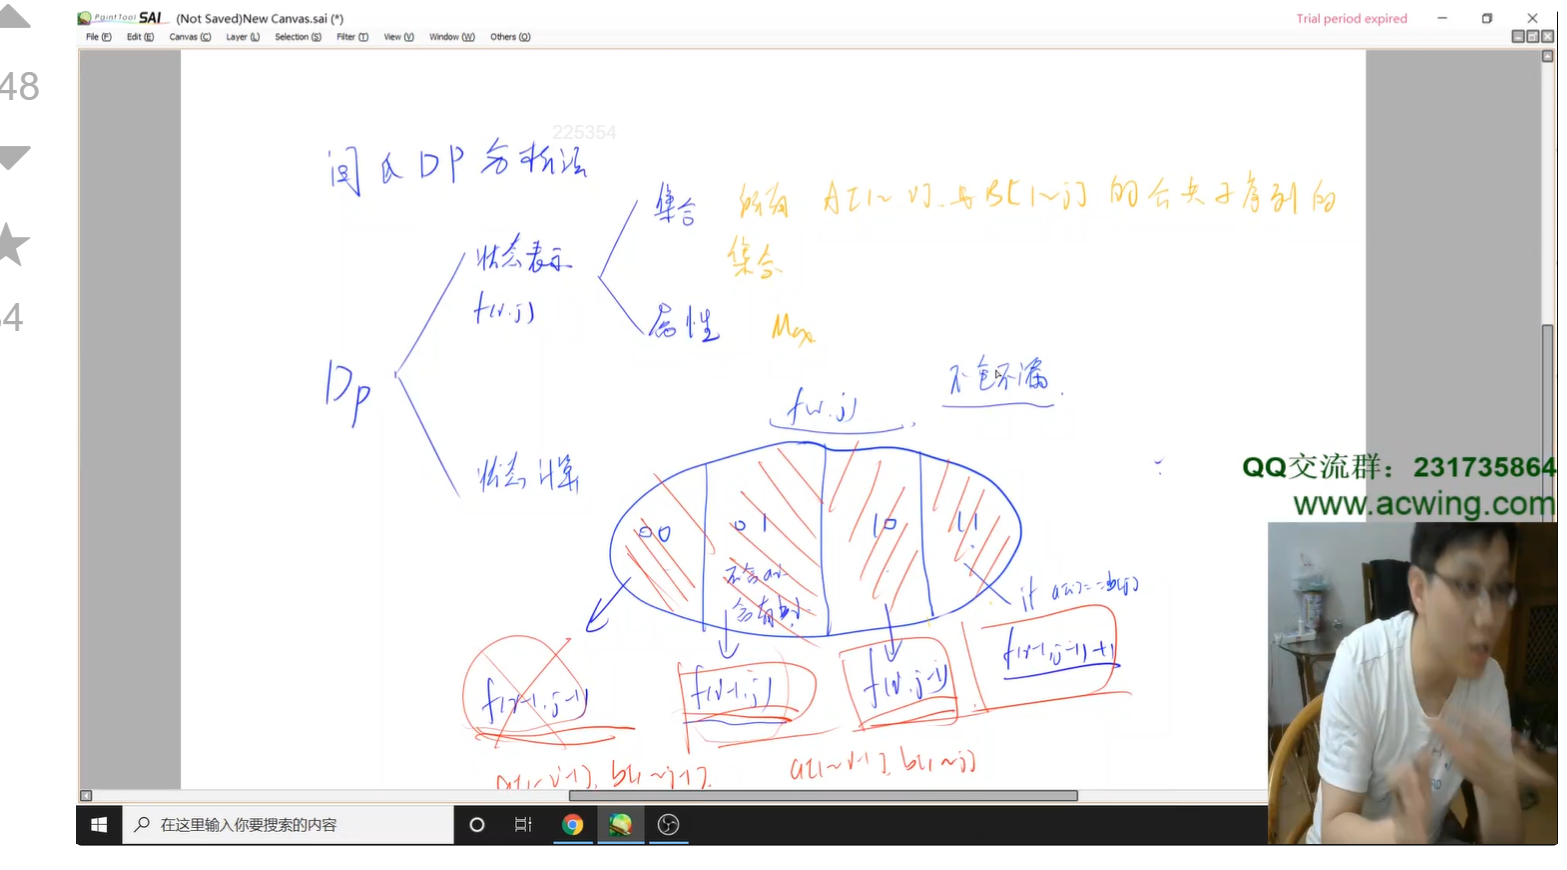 48
54
PaintTool SAI (Not Saved)New Canvas.sai (*)
Trial period expired
File (F) Edit (E) Canvas (C) Layer (L) Selection (S) Filter (T) View (V) Window (W) Others (O)
225354
闫氏DP分析法
集合 所有A[1~i]与B[1~j]的公共子序列的
集合
状态表示
f(i,j)
属性 Max
DP
不包不漏
f(i,j)
状态计算
QQ交流群：231735864
www.acwing.com
00 01 10 11
不含ai
含有bj
if a[i]==b[j]
f(i-1,j-1) f(i-1,j) f(i,j-1) f(i-1,j-1)+1
a[1~i-1], b[1~j-1]. a[1~i-1], b[1~j]
在这里输入你要搜索的内容